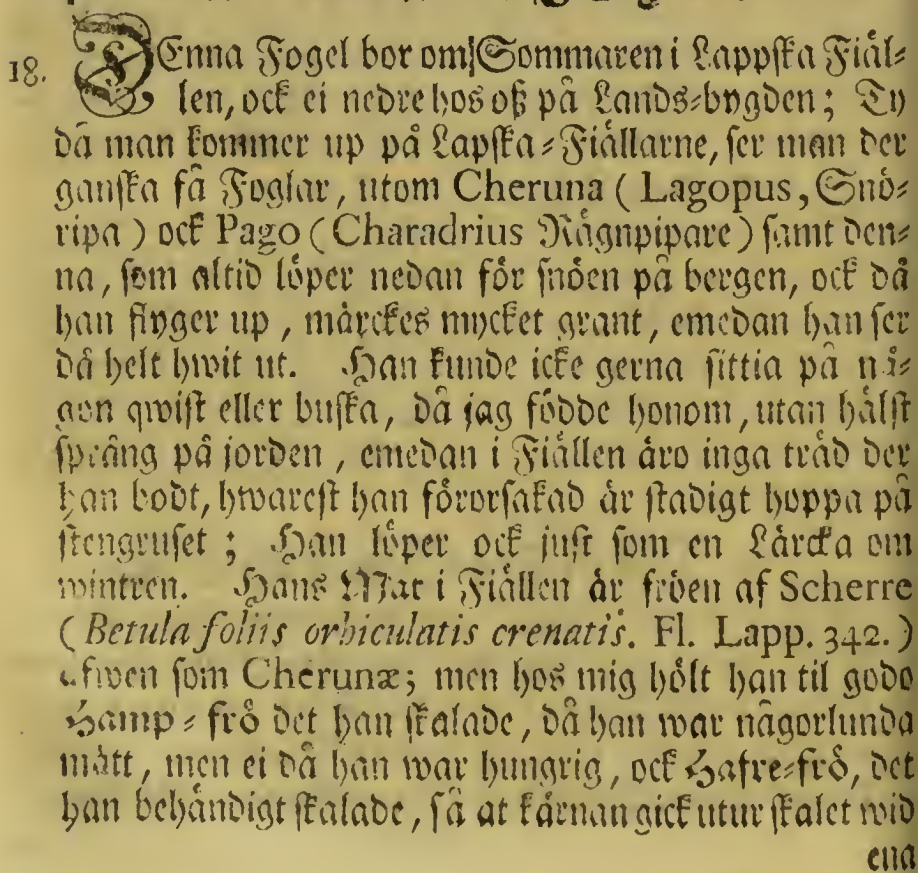 18. DEnna Fogel bor om Sommaren i Lappska Fiäl⸗
len, ock ei nedre hos oß på Lands⸗bygden; Ty
då man kommer up på Lapska⸗Fiällarne, ser man der
ganska få Foglar, utom Cheruna (Lagopus, Snö⸗
ripa) ock Pago (Charadrius Rägnpipare) samt den⸗
na, som altid löper nedan för snöen på bergen, ock då
han flyger up, märckes mycket grant, emedan han ser
då helt hwit ut. Han kunde icke gerna sittia på nå⸗
gon qwist eller buska, då jag födde honom, utan hälst
spräng på jorden, emedan i Fiällen äro inga träd der
han bodt, hwarest han förorsakad är stadigt hoppa på
stengruset; Han löper ock just som en Lärcka om
wintren. Hans Mat i Fiällen är fröen af Scherre
(Betula foliis orbiculatis crenatis. Fl. Lapp. 342.)
äfwen som Cherunæ; men hos mig hölt han til godo
Hamp⸗frö det han skalade, då han war någorlunda
mätt, men ei då han war hungrig, ock Hafre⸗frö, det
han behändigt skalade, så at kärnan gick utur skalet wid
ena